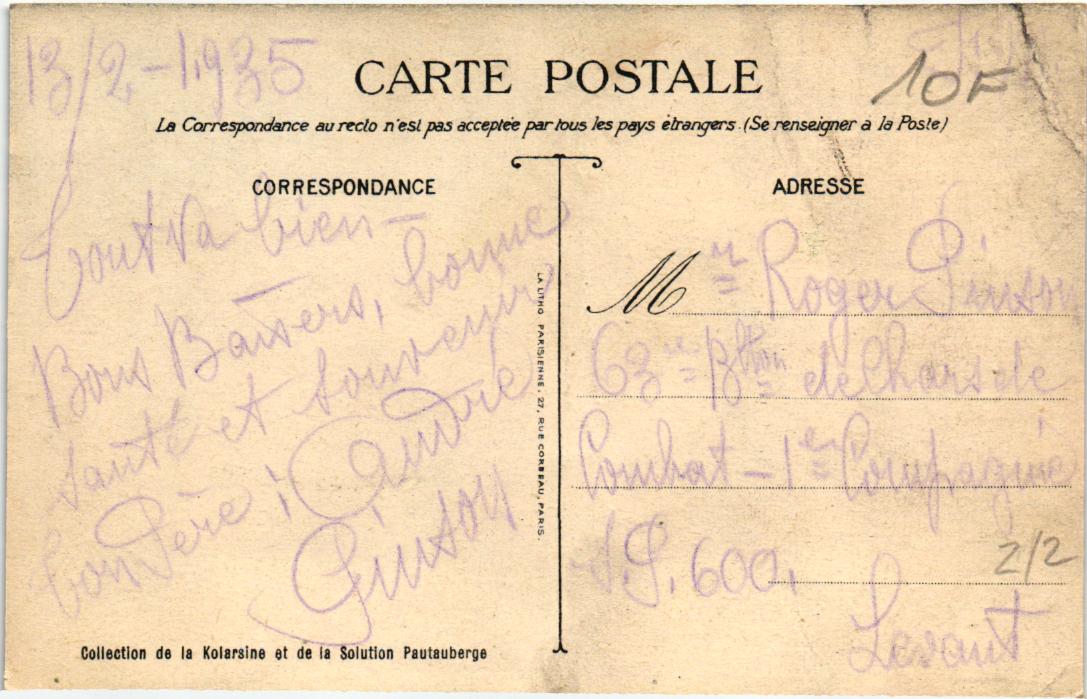 13/2-1935
10F
CARTE POSTALE
La Correspondance au recto n'est pas acceptée par tous les pays étrangers (Se renseigner à la Poste)
CORRESPONDANCE
Tout va bien-
Bons Baisers, bonne
santé et souvenir
ton Père : Candre
Pinson
ADRESSE
Mr Roger Pinson
63me Btton de Chars de
Combat - 1ere Compagnie
S.P. 600.
2/2
Levant
LA LITHO PARISIENNE, 27, RUE CORBEAU, PARIS.
Collection de la Kolarsine et de la Solution Pautauberge